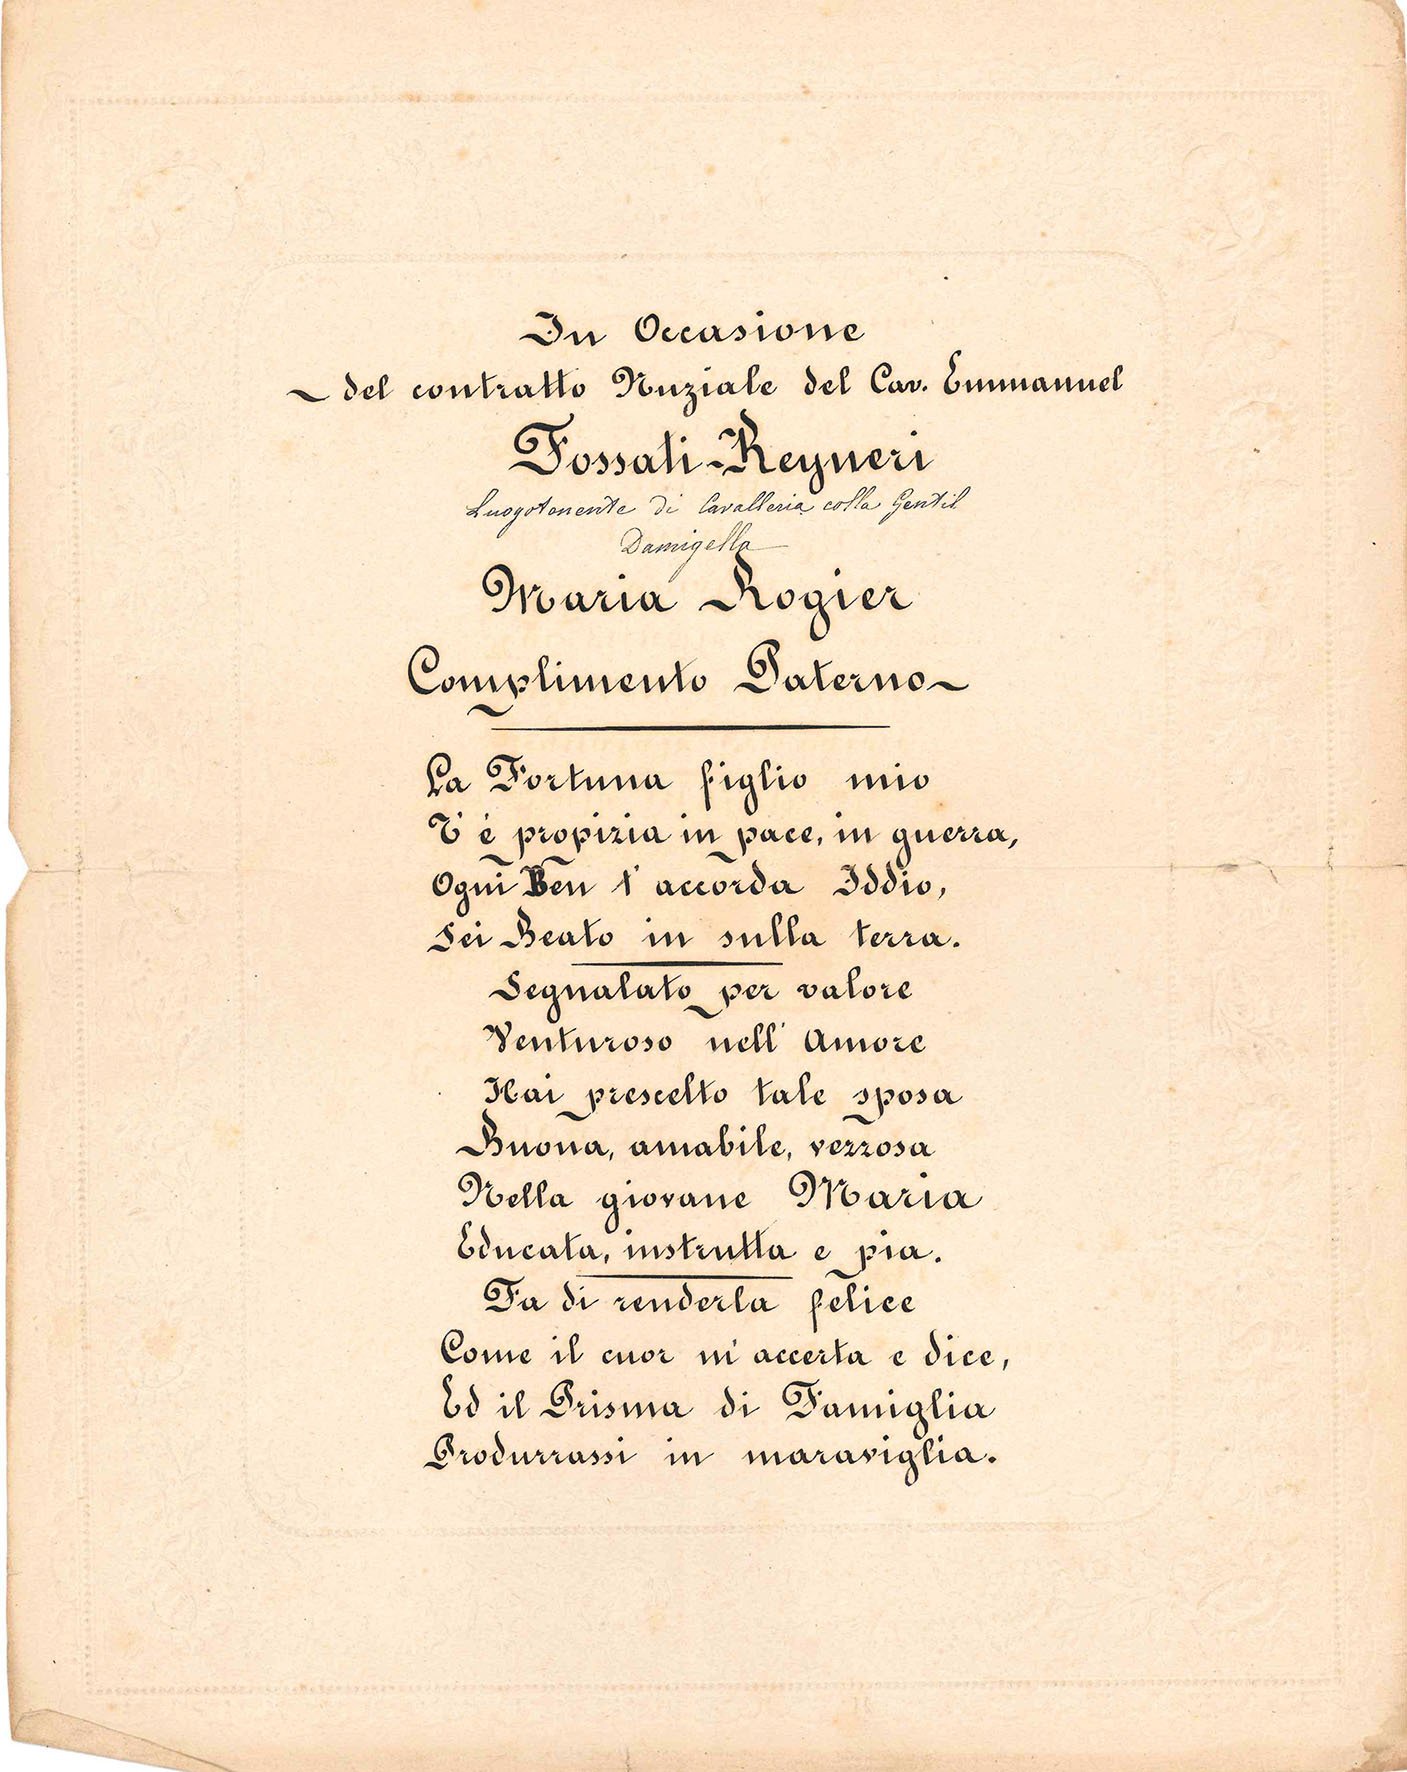 In Occasione
del contratto Nuziale del Cav. Emmanuel
Fossati-Reyneri
Luogotenente di Cavalleria colla Gentil
Damigella
Maria Rogier
Complimento Paterno
La Fortuna figlio mio
T'è propizia in pace, in guerra,
Ogni Ben t'accorda Iddio,
Sei Beato in sulla terra.
Segnalato per valore
Venturoso nell' Amore
Hai prescelto tale sposa
Buona, amabile, vezzosa
Nella giovane Maria
Educata, instrutta e pia.
Fa di renderla felice
Come il cuor m'accerta e dice,
Ed il Prisma di Famiglia
Produrrassi in maraviglia.